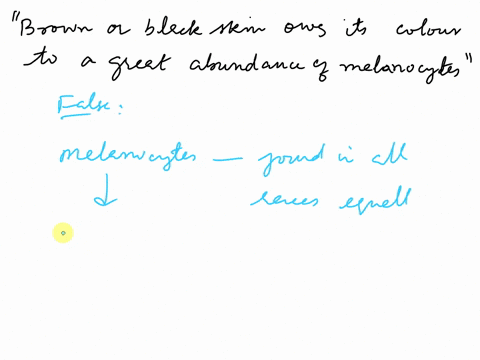 "Brown or black skin owes its colour
to a great abundance of melanocytes"
False:
melanocytes — found in all
races equall